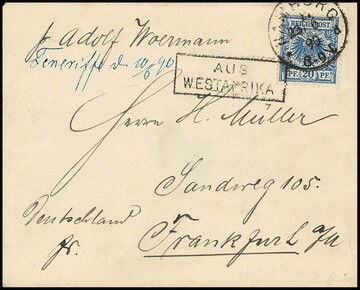 pr Adolf Woermann
Teneriffe d. 10/6 90
HAMBURG
REICHSPOST
PF. 20 PF.
AUS
WESTAFRIKA
Herrn H. Müller
Sandweg 105.
Deutschland
Frankfurt a/M